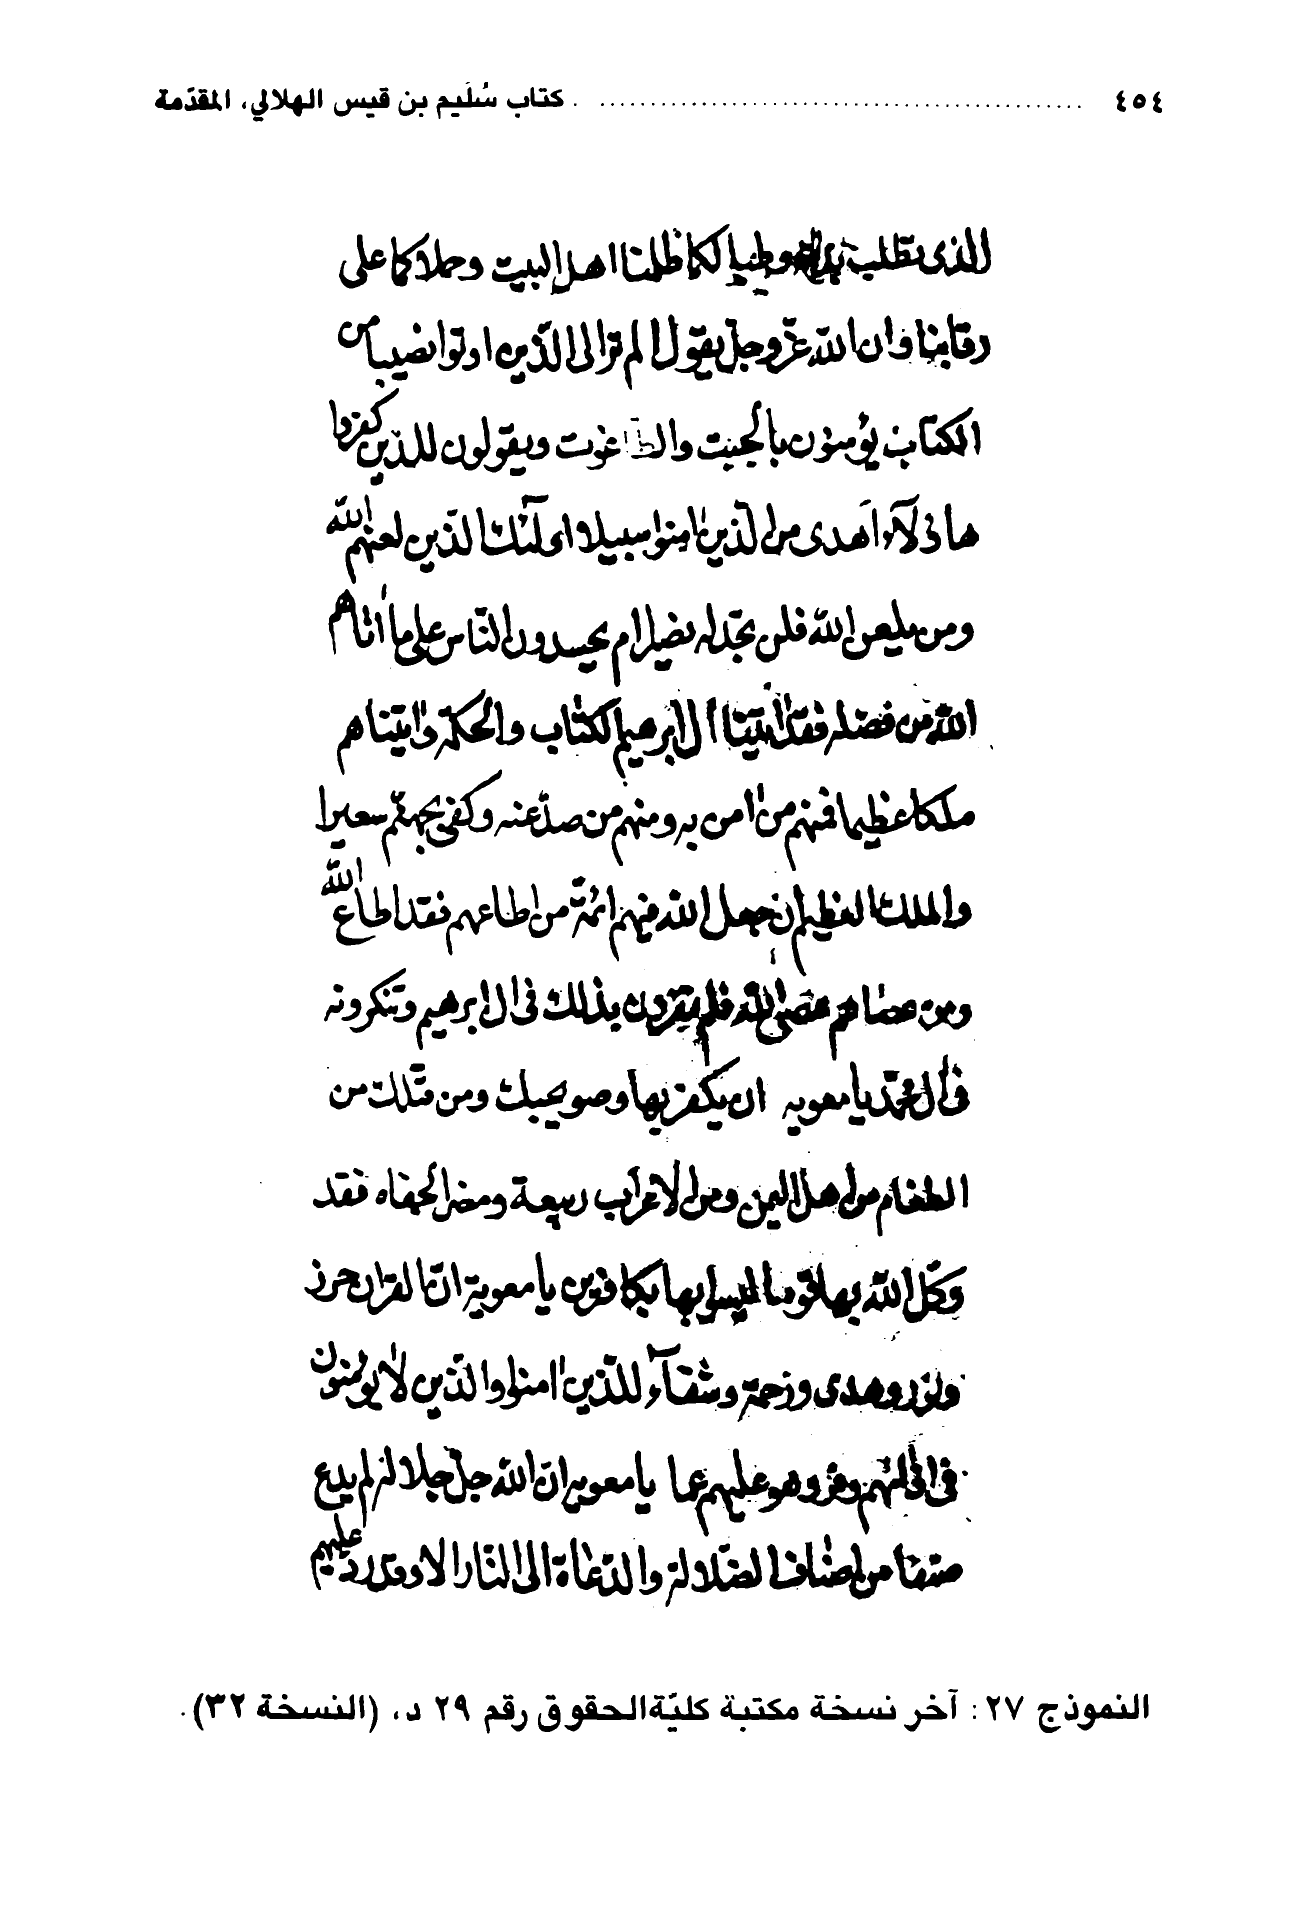 ٤٥٤ ........ كتاب سُلَيم بن قيس الهلالي، المقدّمة
الذى تطلب لكما ظلمنا اهل البيت وحملاكما على
رقابنا وان الله عزّ وجلّ يقول الم تر الى الذين اوتوا نصيبا من
الكتاب يؤمنون بالجبت والطاغوت ويقولون للذين كفروا
هاؤلآء اهدى من الذين امنوا سبيلا اولئك الذين لعنهم الله
ومن يلعن الله فلن تجد له نصيرا ام يحسدون الناس على ما اتاهم
الله من فضله فقد اتينا ال ابرهيم الكتاب والحكمة واتيناهم
ملكا عظيما فمنهم من امن به ومنهم من صدّ عنه وكفى بجهنّم سعيرا
والملك العظيم ان جعل الله فيهم ائمّة من اطاعهم فقد اطاع الله
ومن عصاهم عصى الله فلم يقرون بذلك فى ال ابرهيم وتنكرونه
فى ال محمّد يا معويه ان تكفر بها وصويحبك ومن قبلك من
الطغام من اهل اليمن ومن الاعراب ربيعة ومضر الجفاه فقد
وكّل الله بها قوما ليسوا بها بكافرين يا معوية انّ القران حرز
ونور وهدى ورحمة وشفآء للذين امنوا والذين لا يؤمنون
فى اذانهم وقر وهو عليهم عما يا معويه ان الله جلّ جلاله لم يدع
صنفا من اصناف الضلالة والدعاة الى النار الا وقد ردّ عليهم
النموذج ٢٧: آخر نسخة مكتبة كليّة الحقوق رقم ٢٩ د، (النسخة ٣٢).